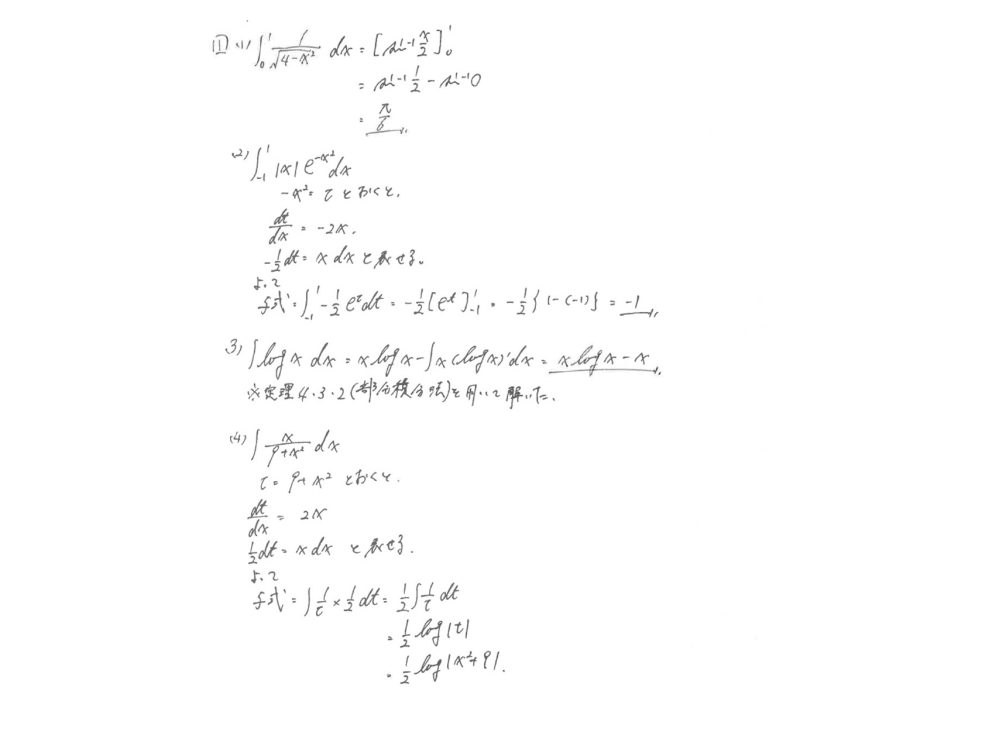 [1] (1) ∫₀¹ 1/√(4-x²) dx = [sin⁻¹ x/2]₀¹
= sin⁻¹ 1/2 - sin⁻¹0
= π/6
(2) ∫₋₁¹ |x| e^(-x²) dx
-x² = t とおくと,
dt/dx = -2x.
-1/2 dt = x dx と表せる。
よって
与式 = ∫₋₁¹ -1/2 eᵗ dt = -1/2 [eᵗ]₋₁¹ = -1/2 {1-(-1)} = -1
3) ∫ log x dx = x log x - ∫ x (log x)' dx = x log x - x
※定理4・3・2(部分積分法)を用いて解いた.
(4) ∫ x/(9+x²) dx
t = 9+x² とおくと.
dt/dx = 2x
1/2 dt = x dx と表せる.
よって
与式 = ∫ 1/t × 1/2 dt = 1/2 ∫ 1/t dt
= 1/2 log |t|
= 1/2 log |x²+9|.